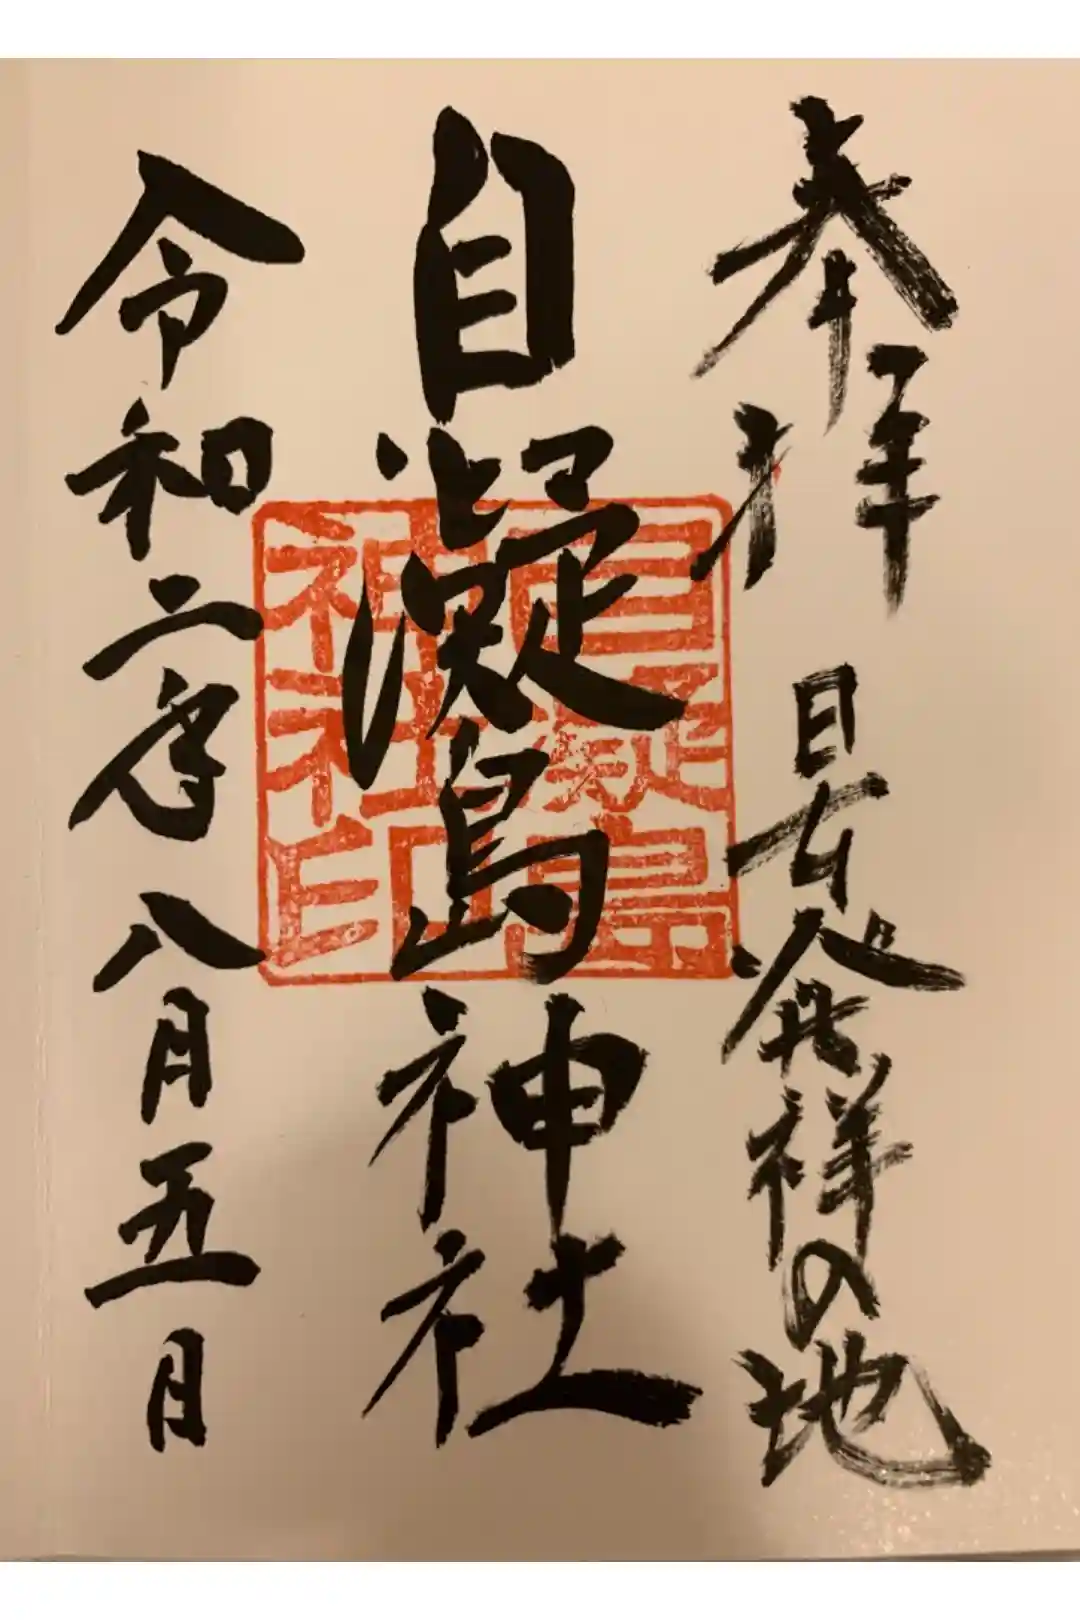 奉拝
日本発祥の地
自凝島神社
自凝島
神社印
令和二年八月五日